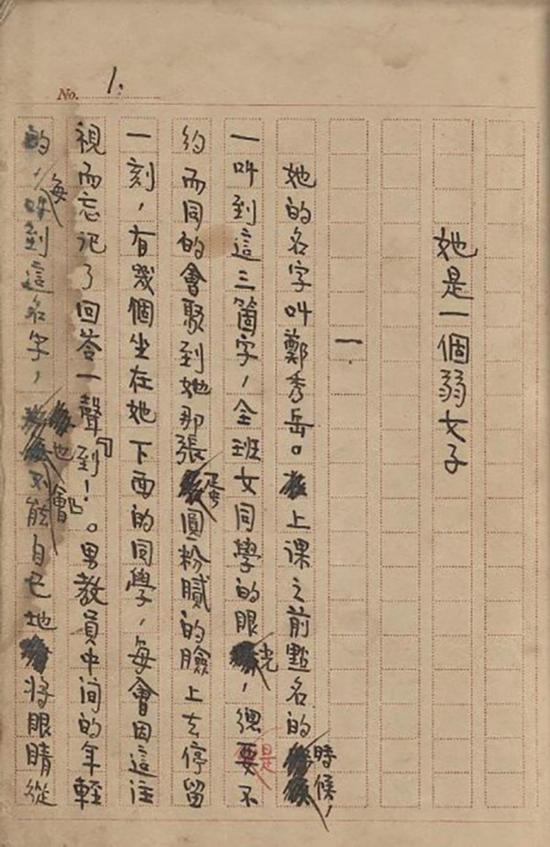 No. 1.
她是一個弱女子
一.
她的名字叫鄭秀岳。上课之前點名的時候，
一叫到這三箇字，全班女同學的眼光，總要不
約而同的會聚到她那張蛋圓粉膩的臉上去停留
一刻，有幾個坐在她下面的同學，每會因這注
視而忘記了回答一聲『到！』。男教員中间的年輕
的，每叫到這名字，也會不能自已地將眼睛從